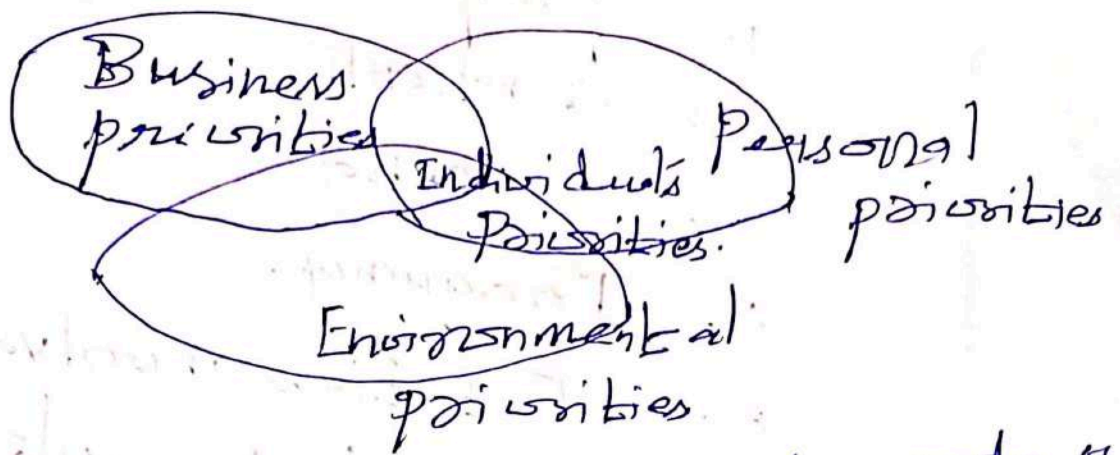 Business
priorities
Personal
priorities
Individual's
Priorities.
Environmental
priorities